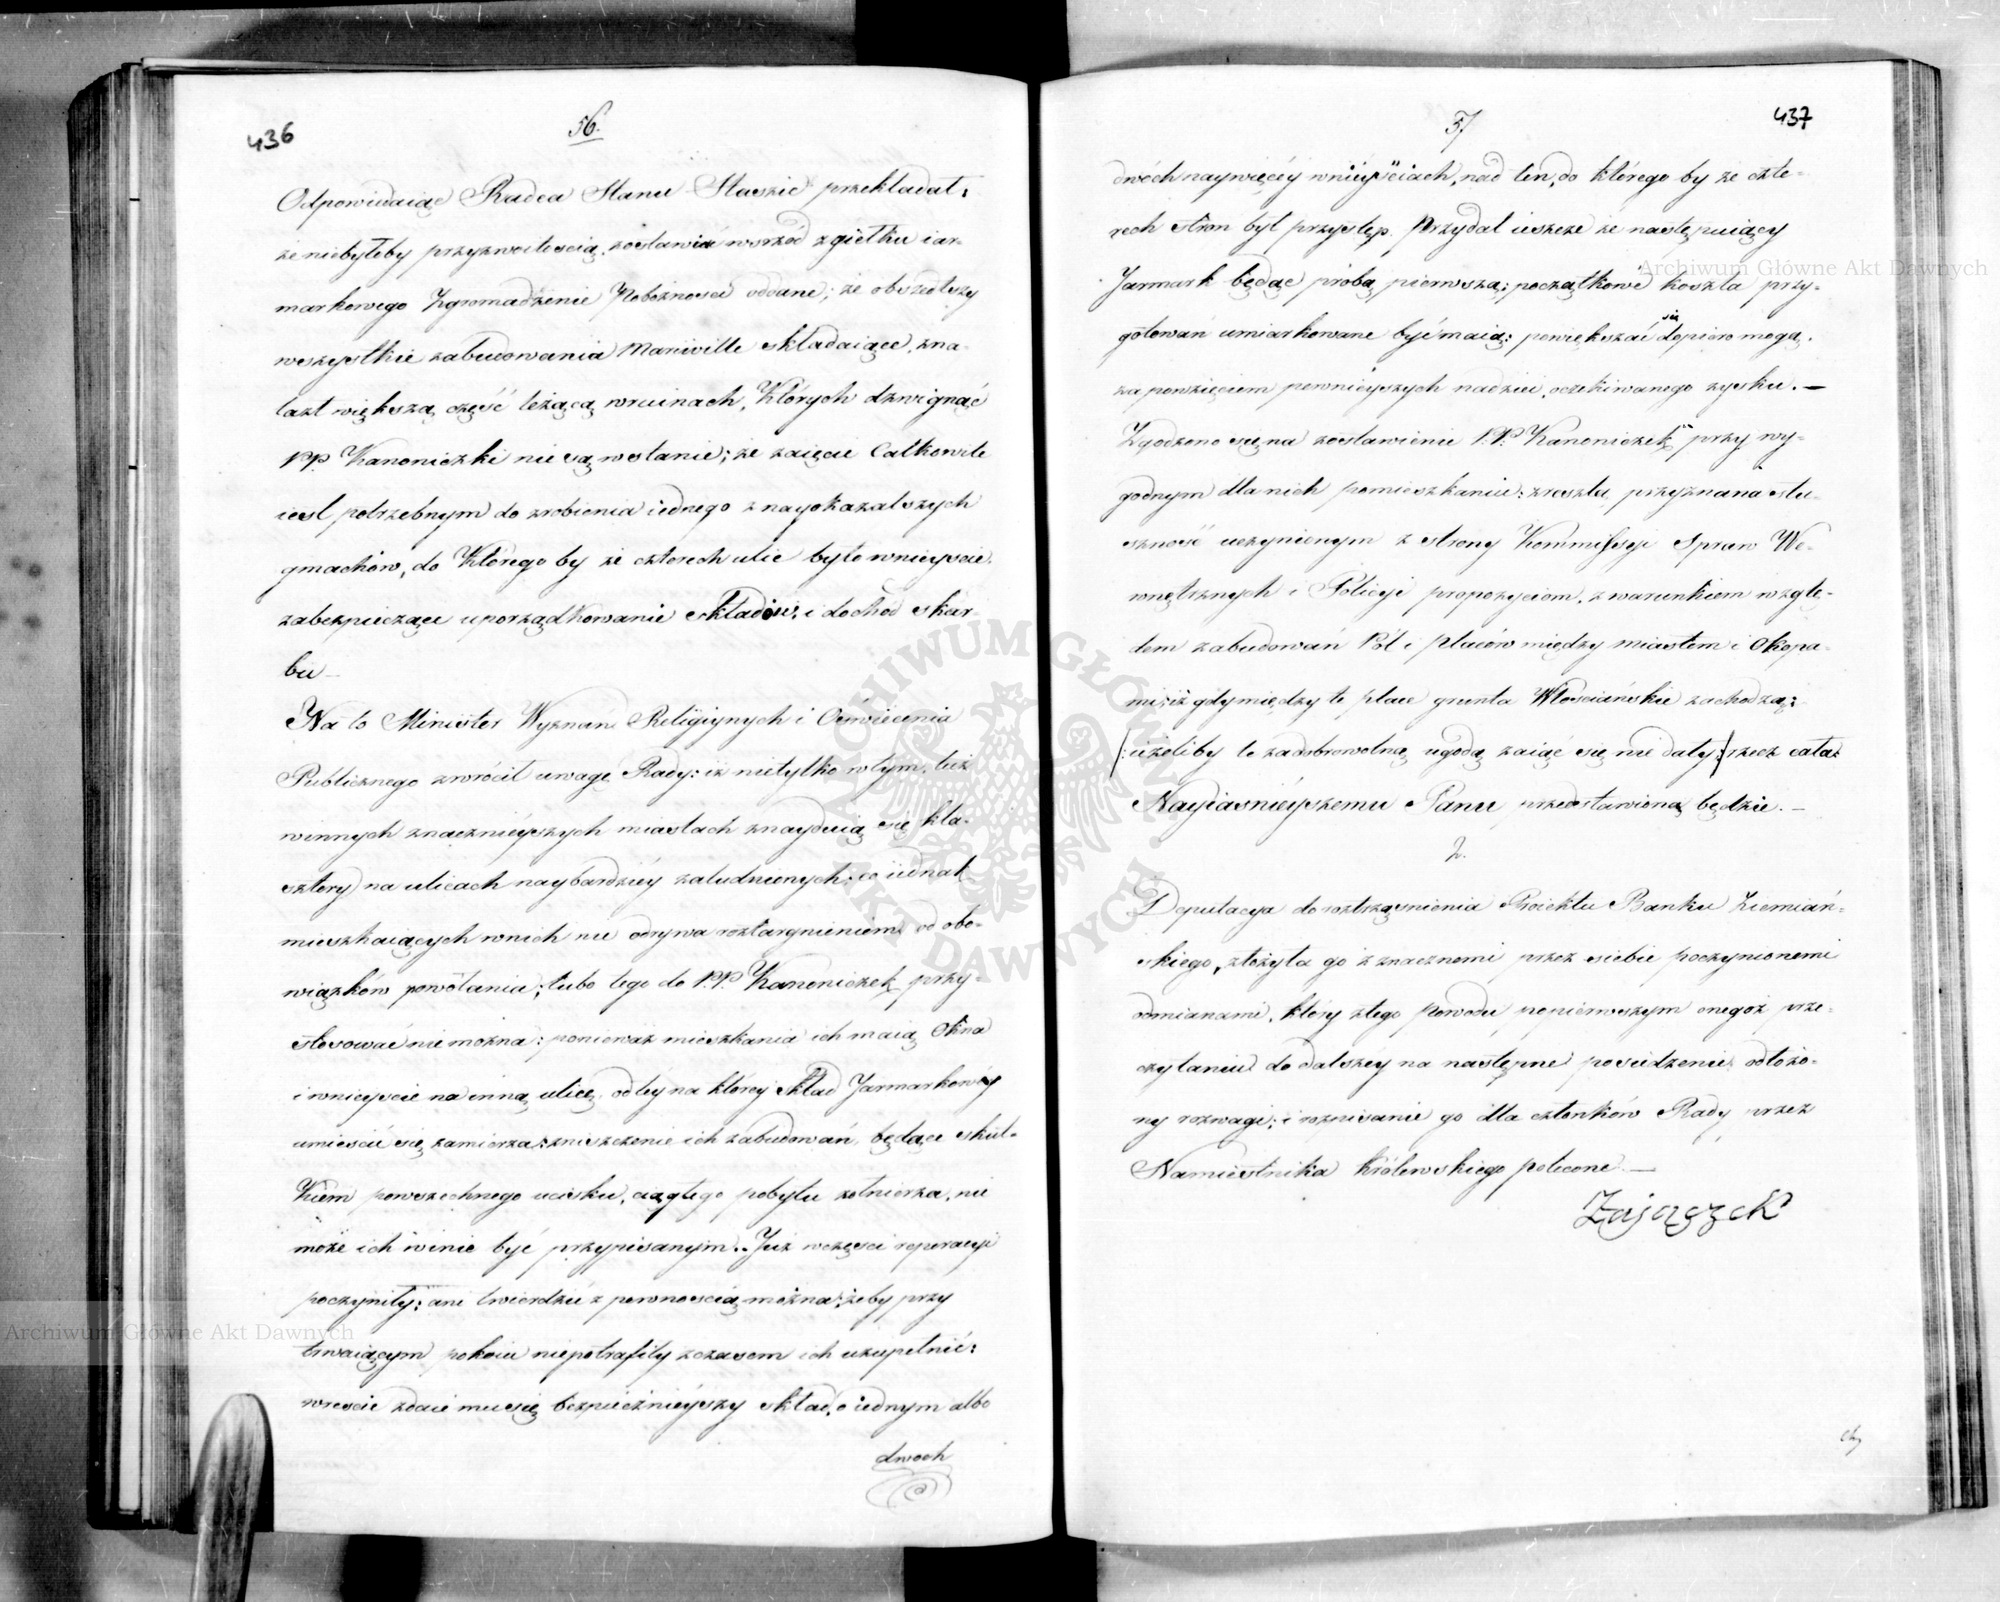 436
56.
Odpowiadaiąc Radca Stanu Staszic przekładał:
że niebyłoby przyzwoitością, zostawiać wśrzód zgiełku iar-
markowego Zgromadzenie Pobożności oddane; że obszedłszy
wszystkie zabudowania Mariville składaiące, zna-
lazł większą część leżącą w ruinach, Których dzwignąć
PP Kanoniczki nie są w stanie; że zaięcie Całkowite
iest potrzebnym do zrobienia iednego z nayokazalszych
gmachów, do Którego by ze czterech ulic było wnieyscie,
zabezpieczaiące uporządkowanie składów, i dochód skar-
bu
Na to Minister Wyznań Religiynych i Oświecenia
Publicznego zwrócił uwagę Rady: iż nietylko w tym, leż
w innych znacznieyszych miastach znayduią się kla-
sztory na ulicach naybardziéy zaludnionych; co iednak
mieszkaiących w nich nie odrywa roztargnieniem od obo-
wiązków powołania; lubo tego do P.P. Kanoniczek przy-
stosować nie można: ponieważ mieszkania ich maią Okna
i wnieyscie na inną ulicę, od tey na któréy skład Jarmarkowy
umieścić się zamierza; zniszczenie ich zabudowań, będące skut-
Kiem powszechnego ucisku, ciągłego pobytu żołnierza, nie
może ich winie być przypisanym. Już w części reperacyi
poczyniły: ani twierdzić z pewnością można; żeby przy
trwaiącym pokoiu niepotrafiły z czasem ich uzupełnić:
wreście zdaie mu się bezpiecznieyszy skład, o iednym albo
dwoch
57
437
dwóch naywięcéy wniyściach, nad ten, do którego by ze czte-
rech stron był przystęp. Przydał ieszcze że następuiący
Jarmark będąc próbą pierwszą; początkowe koszta przy-
gotowań umiarkowane być maią: powiększać się dopiero mogą,
za powzięciem pewnieyszych nadziei, oczekiwanego zysku. —
Zgodzono się na zostawienie P.P. Kanoniczek przy wy-
godnym dla nich pomieszkaniu: zresztą, przyznana słu-
szność uczynionym z strony Kommissyi Spraw We-
wnętrznych i Policyi propozyciom, z warunkiem wzglę-
dem zabudowań Pól i placów między miastem i Okopa-
mi; iż gdy między te place grunta Włościańskie zachodzą;
(: ieżeliby te za dobrowolną ugodą zaiąć się nie dały :) rzecz cała
Nayiaśnieyszemu Panu przedstawioną będzie. —
2.
Deputacya do roztrząśnienia Proiektu Banku Ziemiań-
skiego, złożyła go z znacznemi przez siebie poczynionemi
odmianami, który z tego powodu po pierwszym onegoż prze-
czytaniu do dalszey na następne posiedzenie odłożo-
ny rozwagi; i rozpisanie go dla członków Rady przez
Namiestnika Królewskiego polecone. —
Zajączek